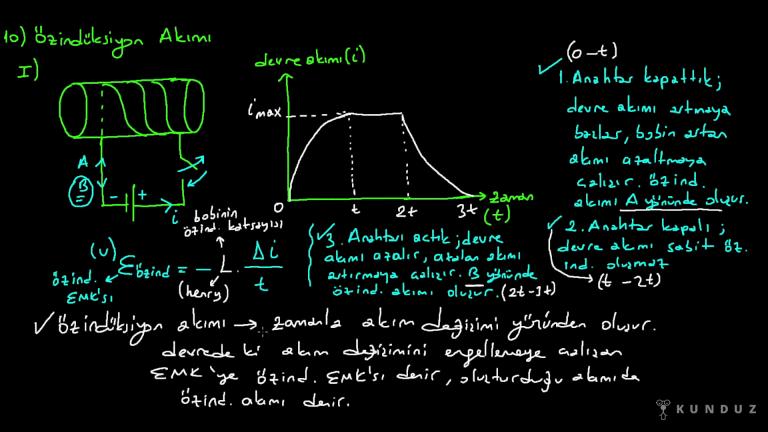 10) Özindüksiyon Akımı
I)
A
B
- +
i
devre akımı (i)
i max
0
t
2t
3t
zaman
(t)
(0-t)
1. Anahtar kapattık;
devre akımı artmaya
başlar, bobin artan
akımı azaltmaya
çalışır. özind.
akımı A yönünde oluşur.
2. Anahtar kapalı;
devre akımı sabit öz.
ind. oluşmaz
(t-2t)
3. Anahtarı açtık; devre
akımı azalır, azalan akımı
artırmaya çalışır. B yönünde
özind. akımı oluşur. (2t-3t)
bobinin
özind. katsayısı
(v)
Ɛözind = - L . Δi / t
özind.
EMK'sı
(henry)
Özindüksiyon akımı → zamanla akım değişimi yüzünden oluşur.
devrede ki akım değişimini engellemeye çalışan
EMK'ye özind. EMK'sı denir, oluşturduğu akımıda
özind. akımı denir.
KUNDUZ